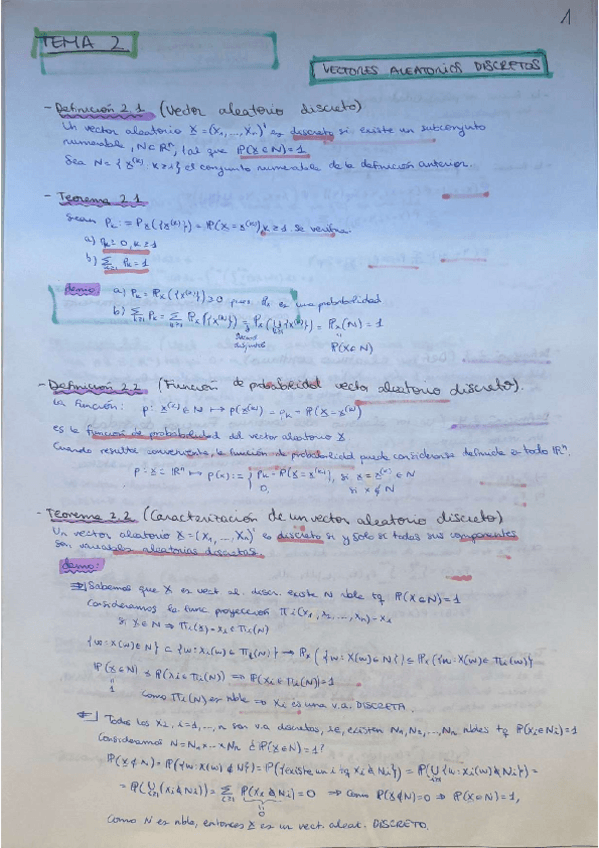 1
TEMA 2
VECTORES ALEATORIOS DISCRETOS
- Definición 2.1 (Vector aleatorio discreto)
Un vector aleatorio X = (X₁, ..., Xₙ)' es discreto si existe un subconjunto
numerable, N ⊂ ℝⁿ, tal que P(X ∈ N) = 1
Sea N = {x⁽ᵏ⁾ : k ≥ 1} el conjunto numerable de la definición anterior.
- Teorema 2.1
Sean Pₖ := Pₓ({x⁽ᵏ⁾}) = P(X = x⁽ᵏ⁾), k ≥ 1. Se verifica:
a) Pₖ ≥ 0, k ≥ 1
b) Σ Pₖ = 1
demo: a) Pₖ = Pₓ({x⁽ᵏ⁾}) ≥ 0 pues Pₓ es una probabilidad
b) Σ Pₖ = Σ Pₓ({x⁽ᵏ⁾}) = Pₓ(∪{x⁽ᵏ⁾}) = Pₓ(N) = 1
P(X ∈ N)
- Definición 2.2 (Función de probabilidad vector aleatorio discreto).
La función: p: x⁽ᵏ⁾ ∈ N ↦ p(x⁽ᵏ⁾) = pₖ = P(X = x⁽ᵏ⁾)
es la función de probabilidad del vector aleatorio X
Cuando resulte conveniente, la función de probabilidad puede considerarse definida en todo ℝⁿ.
p: x ∈ ℝⁿ ↦ p(x) := { pₖ = P(X = x⁽ᵏ⁾), si x = x⁽ᵏ⁾ ∈ N
0, si x ∉ N
- Teorema 2.2 (Caracterización de un vector aleatorio discreto)
Un vector aleatorio X = (X₁, ..., Xₙ)' es discreto si y solo si todas sus componentes
son variables aleatorias discretas.
demo:
⇒ Sabemos que X es vect al. discr. existe N nble tq P(X ∈ N) = 1
Consideramos la func proyección Πᵢ(x₁, x₂, ..., xₙ) = xᵢ
si X ∈ N ⇒ Πᵢ(X) = xᵢ ∈ Πᵢ(N)
{w : X(w) ∈ N} ⊂ {w : Xᵢ(w) ∈ Πᵢ(N)} → Pₓ({w : X(w) ∈ N}) ≤ Pₓ({w : X(w) ∈ Πᵢ(N)})
P(X ∈ N) ≤ P(Xᵢ ∈ Πᵢ(N)) ⇒ P(Xᵢ ∈ Πᵢ(N)) = 1
1
Como Πᵢ(N) es nble ⇒ Xᵢ es una v.a. DISCRETA.
⇐ Todos los Xᵢ, i = 1, ..., n son v.a discretas, ie, existen N₁, N₂, ..., Nₙ nbles tq P(Xᵢ ∈ Nᵢ) = 1
Consideramos N = N₁ x ... x Nₙ ¿P(X ∈ N) = 1?
P(X ∉ N) = P({w : X(w) ∉ N}) = P({existe un i tq Xᵢ ∉ Nᵢ}) = P(∪{w : Xᵢ(w) ∉ Nᵢ}) =
= P(∪(Xᵢ ∉ Nᵢ)) = Σ P(Xᵢ ∉ Nᵢ) = 0 ⇒ Como P(X ∉ N) = 0 ⇒ P(X ∈ N) = 1,
0
Como N es nble, entonces X es un vect. aleat. DISCRETO.